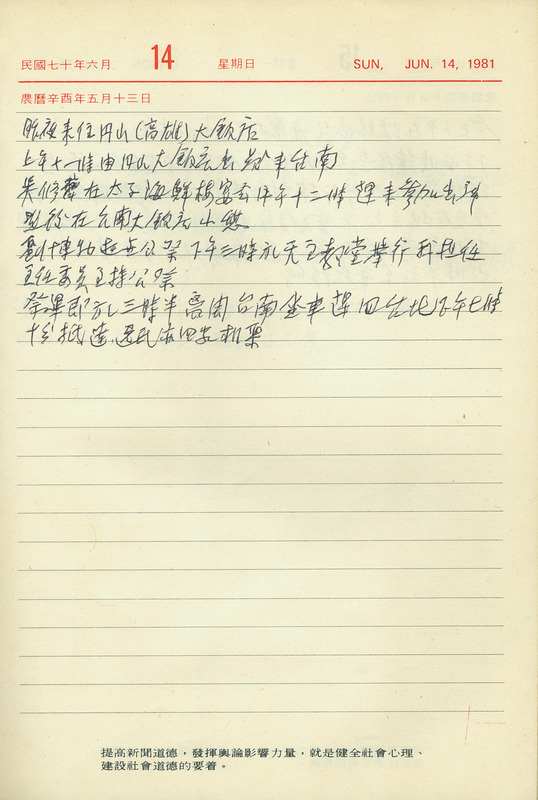 民國七十年六月 14 星期日 SUN, JUN. 14, 1981
農曆辛酉年五月十三日
昨夜来住円山(高雄)大飯店
上午十一時由円山大飯店出発来台南
吳修 在太子海鮮樓宴会 午十二時 来參加
在台南大飯店小憩
劉博 公祭下午三時於天主教堂舉行我担任
主任委員主持公祭
祭畢即於三時半 開台南坐車 回台北下午七時
十分抵達
提高新聞道德,發揮輿論影響力量,就是健全社會心理、
建設社會道德的要着。